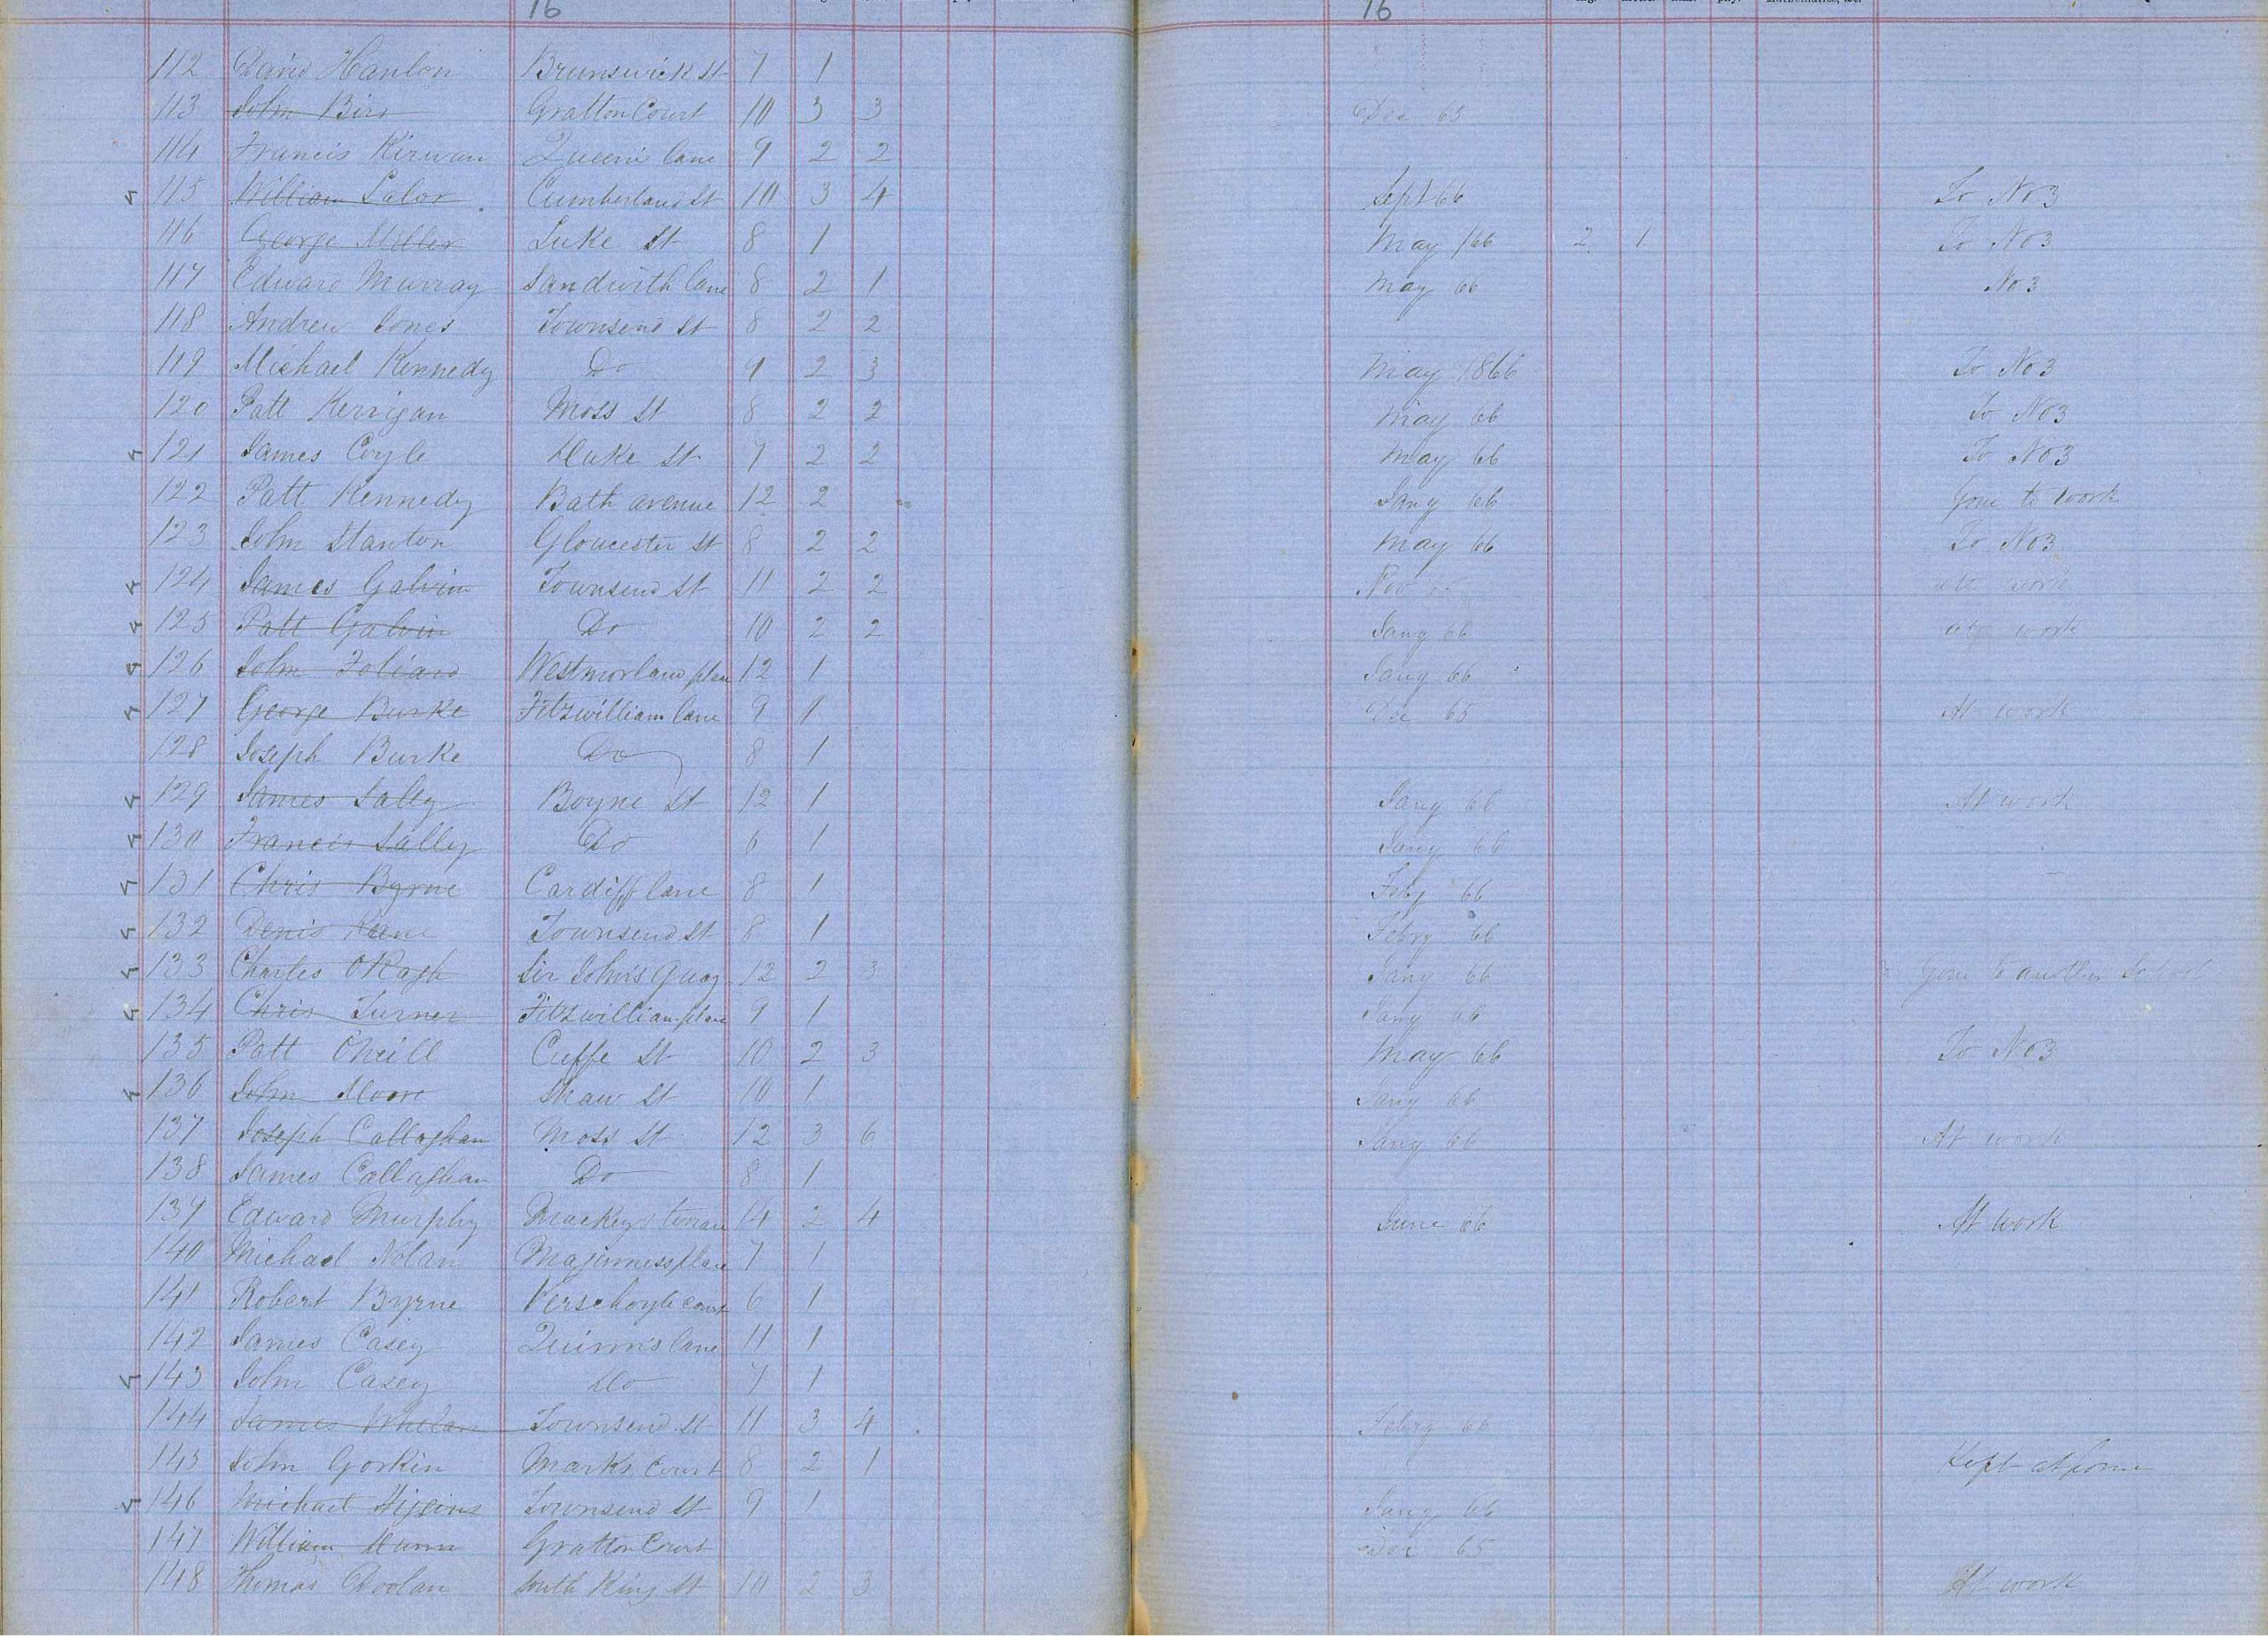 16 16
112 David Hanlon Brunswick St 7 1
113 John Grattan Court 10 3 3 Dec 65
114 Francis Kirwan lane 9 2 2
115 William Lalor Cumberland St 10 3 4 Sept 66 To No 3
116 George Miller Luke St 8 1 May /66 2 1 To No 3
117 Edward Murray Sandwith lane 8 2 1 May 66 No 3
118 Andrew Jones Townsend St 8 2 2
119 Michael Kennedy Do 9 2 3 May 1866 To No 3
120 Patt Kerrigan Moss St 8 2 2 May 66 To No 3
121 James Coyle Duke St 7 2 2 May 66 To No 3
122 Patt Kennedy Bath avenue 12 2 Jany 66 Gone to work
123 John Stanton Gloucester St 8 2 2 May 66 To No 3
124 James Galvin Townsend St 11 2 2 Nov work
125 Patt Galvin Do 10 2 2 Jany 66 work
126 John Westmorland place 12 1 Jany 66
127 George Burke Fitzwilliam lane 9 1 Dec 65 At work
128 Joseph Burke Do 8 1
129 James Lally Boyne St 12 1 Jany 66 At work
130 Francis Lally Do 6 1 Jany 66
131 Chris Byrne Cardiff lane 8 1 Feby 66
132 Denis Kane Townsend St 8 1 Febry 66
133 Charles Sir John's Quay 12 2 3 Jany 66 Gone to another School
134 Chris Turner Fitzwilliam place 9 1 Jany 66
135 Patt O'Neill Cuffe St 10 2 3 May 66 To No 3
136 John Moore Shaw St 10 1 Jany 66
137 Joseph Callaghan Moss St 12 3 6 Jany 66 At work
138 James Callaghan Do 8 1
139 Edward Murphy Mackeys terrace 14 2 4 June 66 At work
140 Michael Nolan place 7 1
141 Robert Byrne Verschoyle court 6 1
142 James Casey Quinn's lane 11 1
143 John Casey Do 7 1
144 James Whelan Townsend St 11 3 4 Febry 66
145 John Gorkin Marks Court 8 2 1 Kept at home
146 Michael Higgins Townsend St 9 1 Jany 66
147 William Dunn Grattan Court Dec 65
148 Thomas Doolan South King St 10 2 3 At work